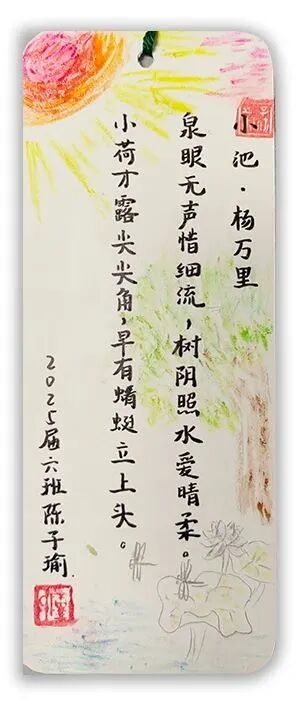 小池·杨万里
泉眼无声惜细流，树阴照水爱晴柔。
小荷才露尖尖角，早有蜻蜓立上头。
2025届六班陈子瑜